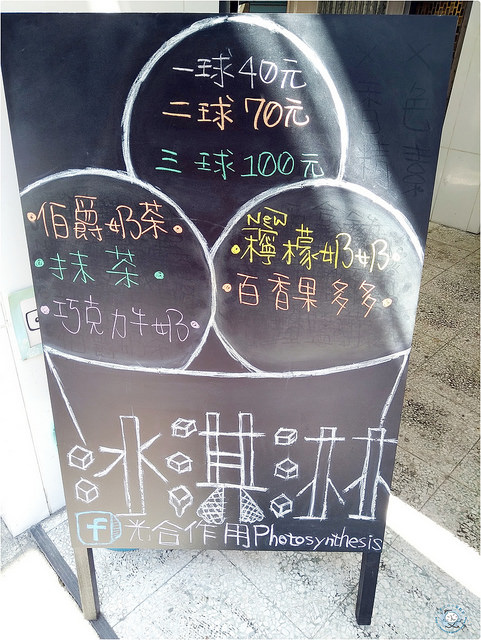 一球40元
二球70元
三球100元
伯爵奶茶
抹茶
巧克力牛奶
New
檸檬奶奶
百香果多多
冰淇林
f 光合作用Photosynthesis